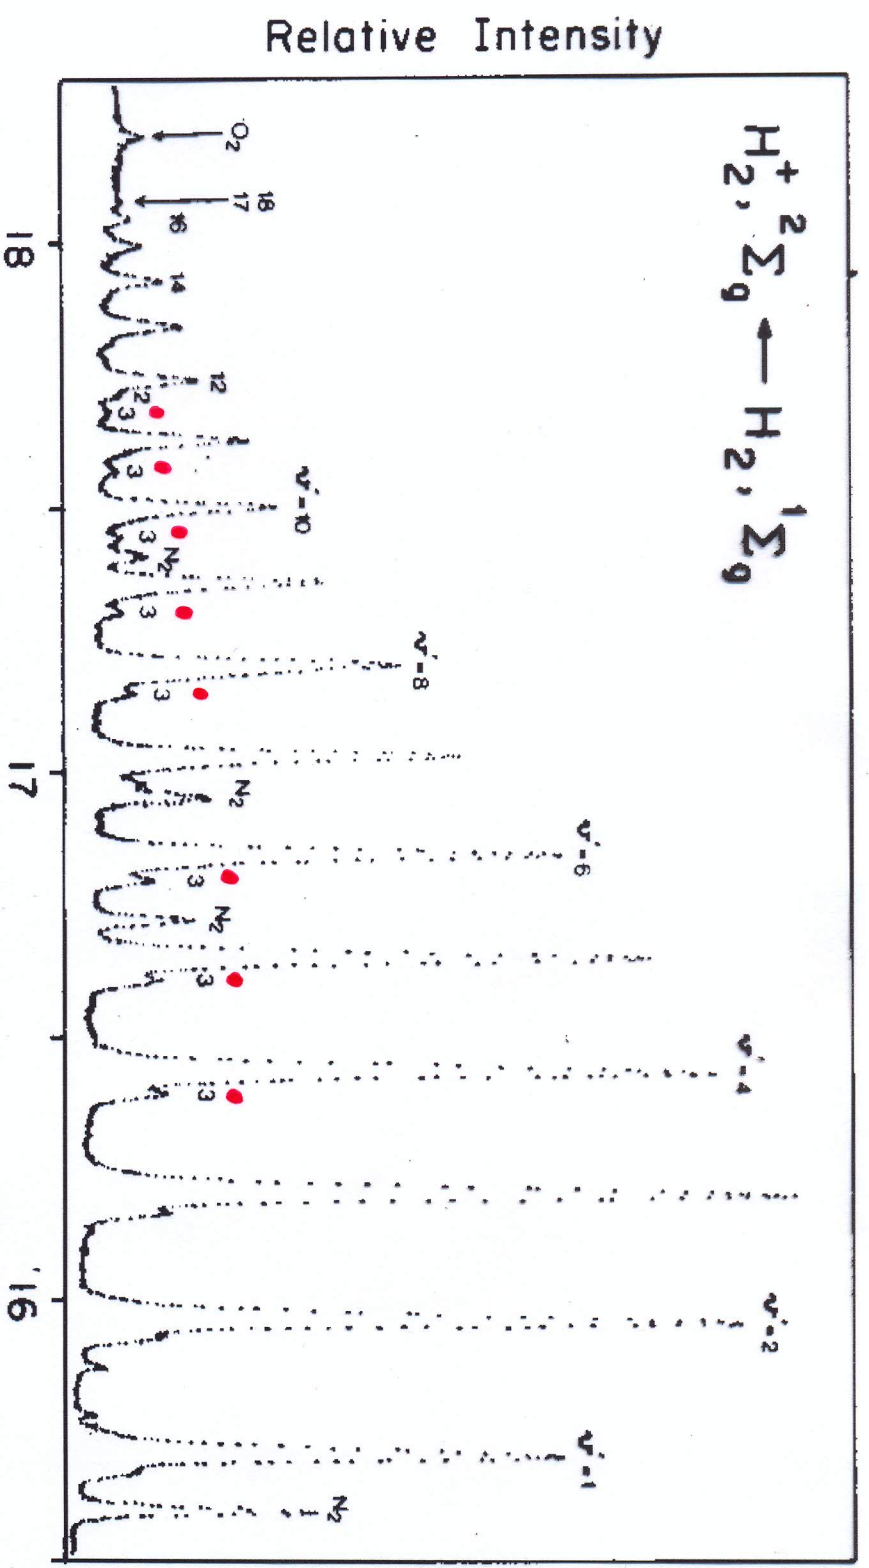 Relative Intensity
H₂⁺, ²Σg ← H₂, ¹Σg
O₂
18
17
16
14
12
12
3
3
v'=10
3
N₂
3
v'=8
3
N₂
v'=6
3
N₂
3
v'=4
3
v'=2
v'=1
N₂
18
17
16